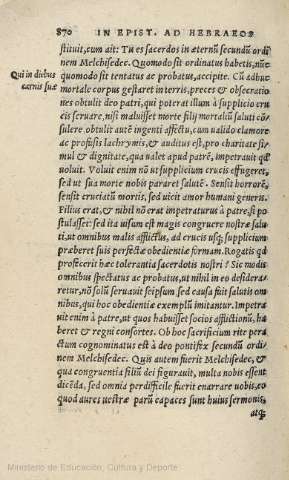 870 IN EPIST. AD HEBRAEOS
stituit, cum ait: Tu es sacerdos in æternũ secundũ ordi
nem Melchisedec. Quomodo sit ordinatus habetis, nũc
Qui in diebus
carnis suæ
quomodo sit tentatus ac probatus, accipite. Cũ adhuc
mortale corpus gestaret in terris, preces & obsecratio
nes obtulit deo patri, qui poterat illum à supplicio cru
cis seruare, nisi maluisset morte filij mortaliũ saluti cõ
sulere. obtulit autẽ ingenti affectu, cum ualido clamore
ac profusis lachrymis, & auditus est, pro charitate si-
mul & dignitate, qua ualet apud patrẽ, impetrauit qđ
uoluit. Voluit enim nõ ut supplicium crucis effugeret,
sed ut sua morte nobis pararet salutẽ. Sensit horrorẽ,
sensit cruciatũ mortis, sed uicit amor humani generis.
Filius erat, & nihil nõ erat impetraturus à patre, si po
stulasset: sed ita uisum est magis congruere nostræ salu
ti, ut omnibus malis afflictus, ad crucis usq; supplicium
præberet suis perfectæ obedientiæ formam. Rogatis qđ
profecerit hæc tolerantia sacerdotis nostri? Sic modis
omnibus spectatus ac probatus, ut nihil in eo desidera-
retur, nõ solũ seruauit seipsum sed causa fuit salutis om
nibus, qui hoc obedientiæ exemplũ imitantur. Impetra
uit enim à patre, ut quos habuisset socios afflictionũ, ha
beret & regni consortes. Ob hoc sacrificium rite pera
ctum cognominatus est à deo pontifix secundũ ordi-
nem Melchisedec. Quis autem fuerit Melchisedec, &
qua congruentia filiũ dei figurauit, multa nobis essent
dicẽda, sed omnia perdifficile fuerit enarrare uobis, eo
quod aures uestræ parũ capaces sunt huius sermonis,
atq;
Ministerio de Educación, Cultura y Deporte